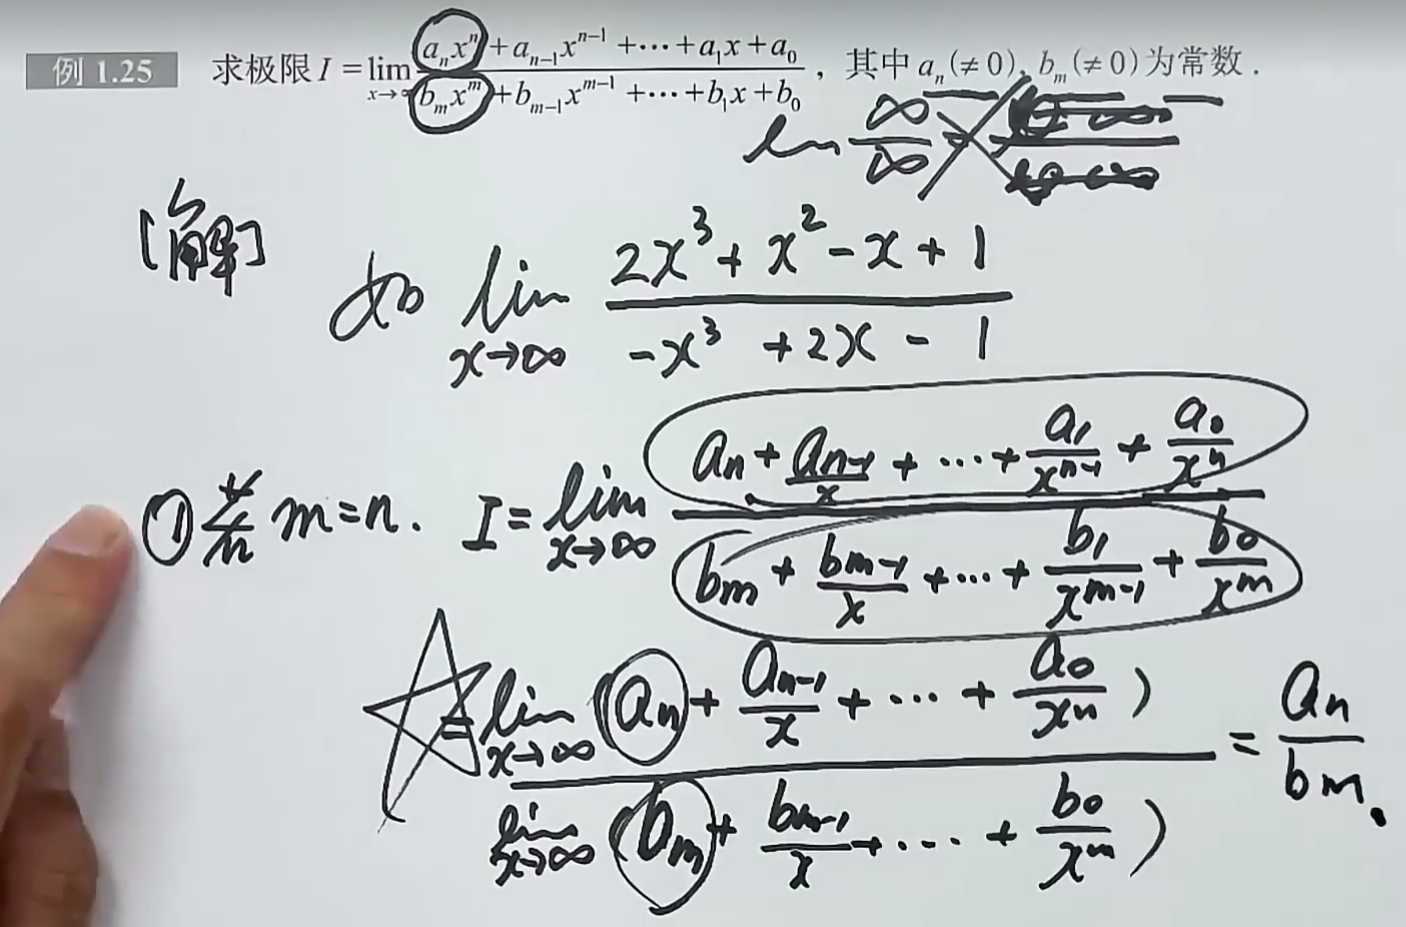 例 1.25 求极限 I = lim_{x→∞} (a_n x^n + a_{n-1} x^{n-1} + ⋯ + a_1 x + a_0) / (b_m x^m + b_{m-1} x^{m-1} + ⋯ + b_1 x + b_0) ，其中 a_n (≠0), b_m (≠0) 为常数 .
∞/∞
[解]
如 lim_{x→∞} (2x^3 + x^2 - x + 1) / (-x^3 + 2x - 1)
① 若 m=n. I = lim_{x→∞} (a_n + a_{n-1}/x + ⋯ + a_1/x^{n-1} + a_0/x^n) / (b_m + b_{m-1}/x + ⋯ + b_1/x^{m-1} + b_0/x^m)
= lim_{x→∞} (a_n + a_{n-1}/x + ⋯ + a_0/x^n) / lim_{x→∞} (b_m + b_{m-1}/x + ⋯ + b_0/x^m) = a_n/b_m.